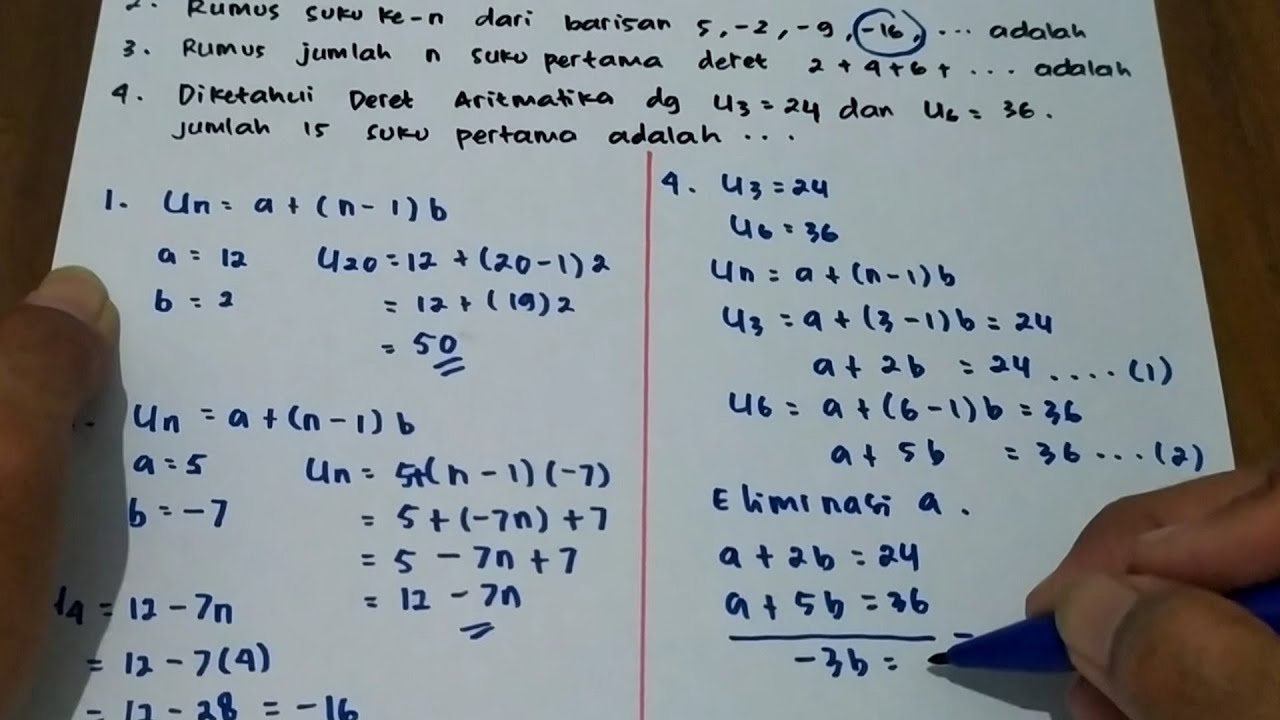 2. Rumus suku ke-n dari barisan 5, -2, -9, -16, ... adalah
3. Rumus jumlah n suku pertama deret 2 + 4 + 6 + ... adalah
4. Diketahui Deret Aritmatika dg U3 = 24 dan U6 = 36.
jumlah 15 suku pertama adalah ...
1. Un = a + (n - 1) b
a = 12 U20 = 12 + (20 - 1) 2
b = 2 = 12 + (19) 2
= 50
Un = a + (n - 1) b
a = 5 Un = 5 + (n - 1) (-7)
b = -7 = 5 + (-7n) + 7
= 5 - 7n + 7
= 12 - 7n
4 = 12 - 7n
= 12 - 7 (4)
= 12 - 28 = -16
4. U3 = 24
U6 = 36
Un = a + (n - 1) b
U3 = a + (3 - 1) b = 24
a + 2b = 24 .... (1)
U6 = a + (6 - 1) b = 36
a + 5b = 36 ... (2)
Eliminasi a.
a + 2b = 24
a + 5b = 36
-
-3b =